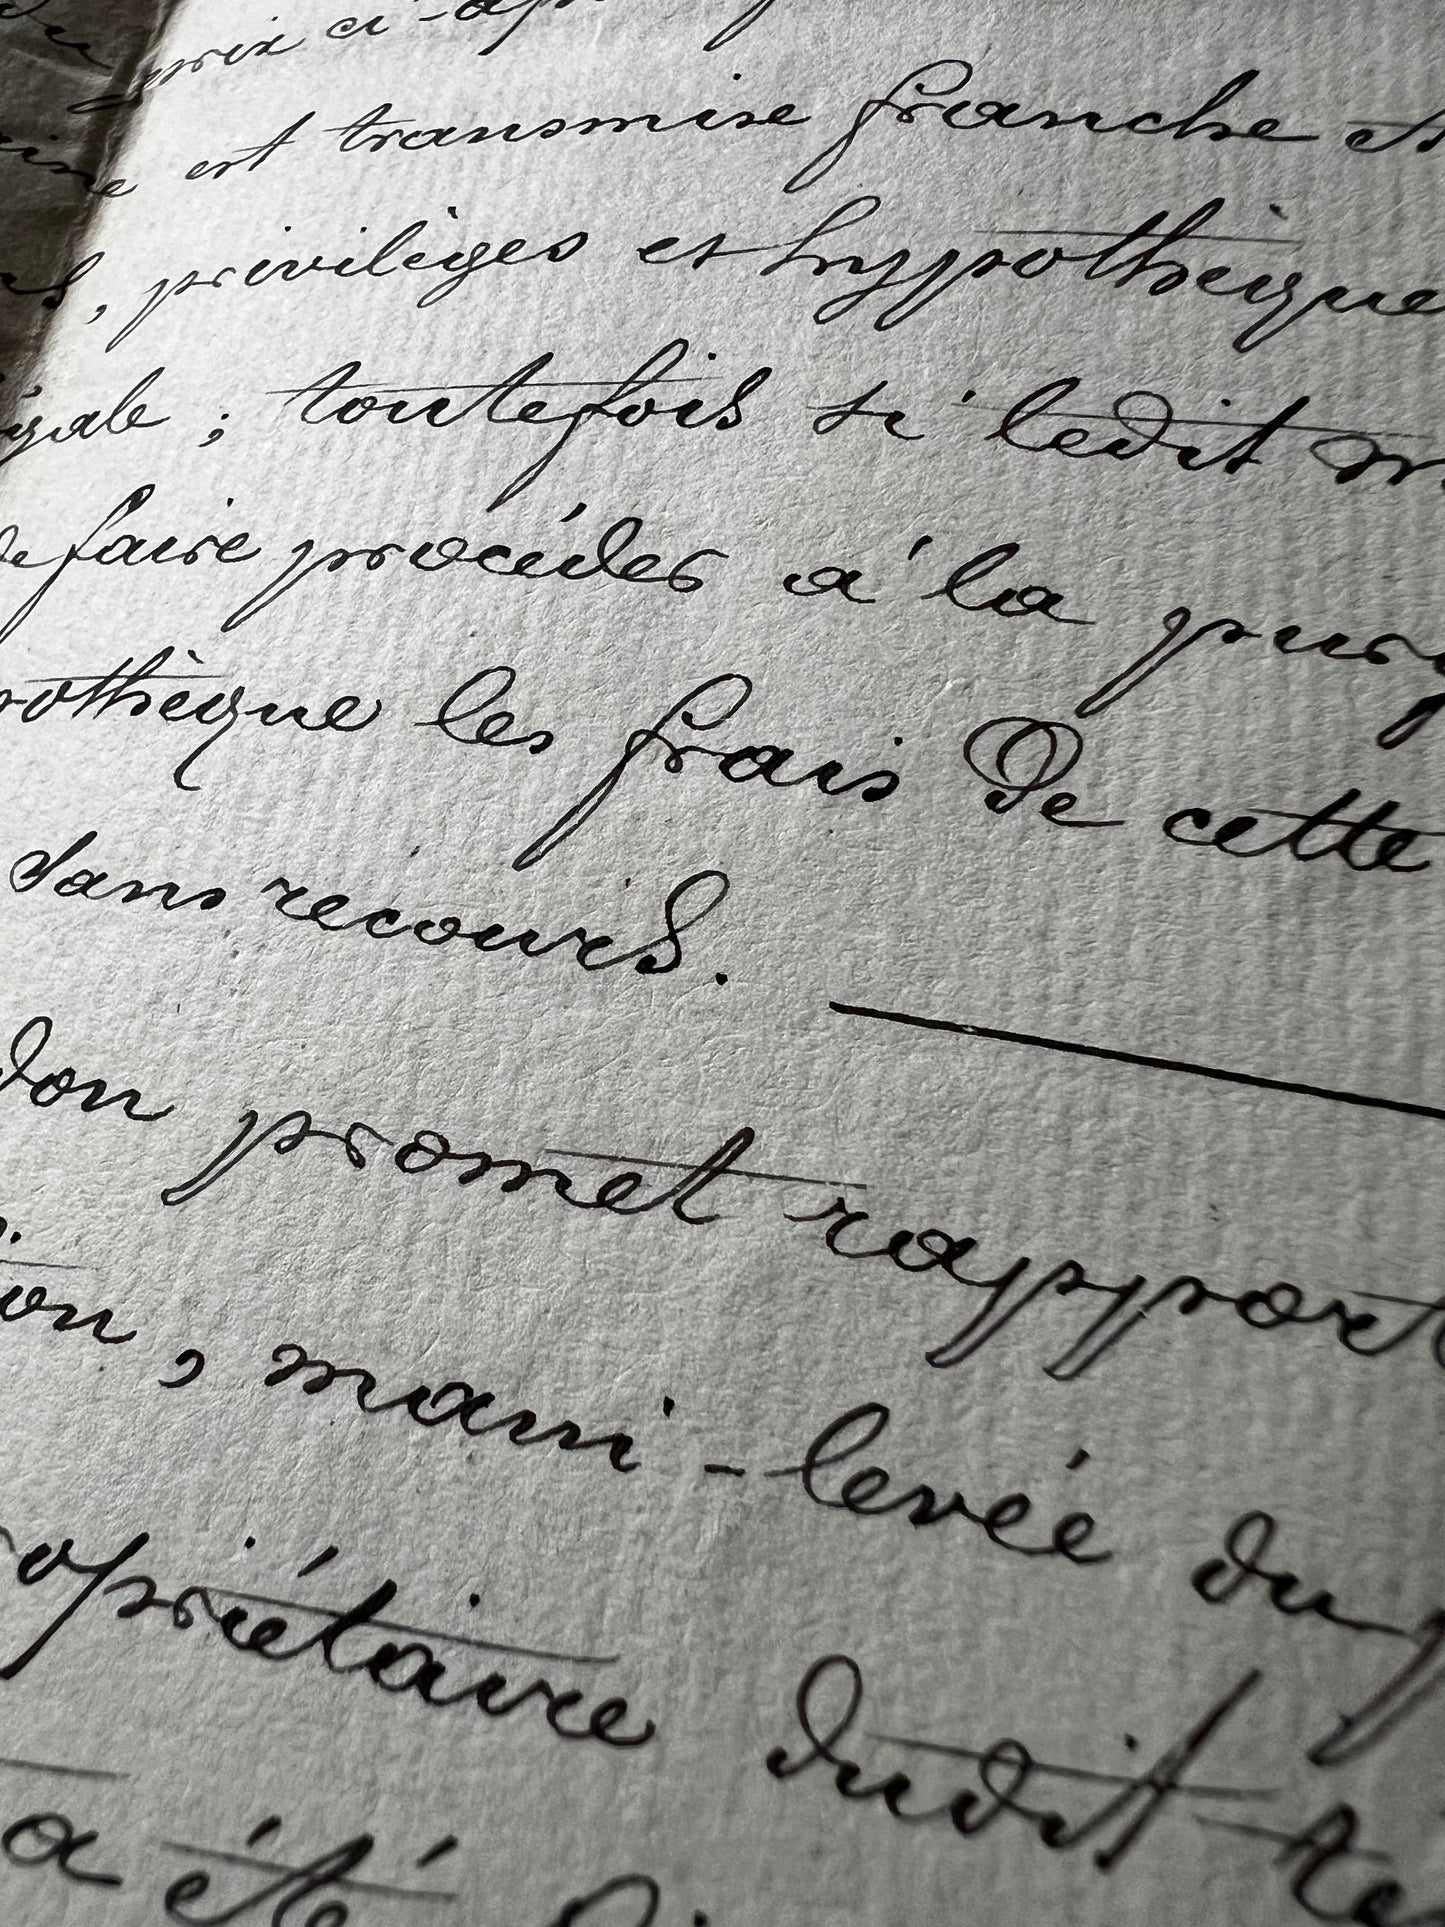 prix ci-ap
est transmise franche et
, privilèges et hypothèque
gale ; toutefois si ledit m
de faire procéder à la purg
pothèque les frais De cette
sans recours.
don promet rapport
ion, main-levée du p
opriétaire dudit re
a été